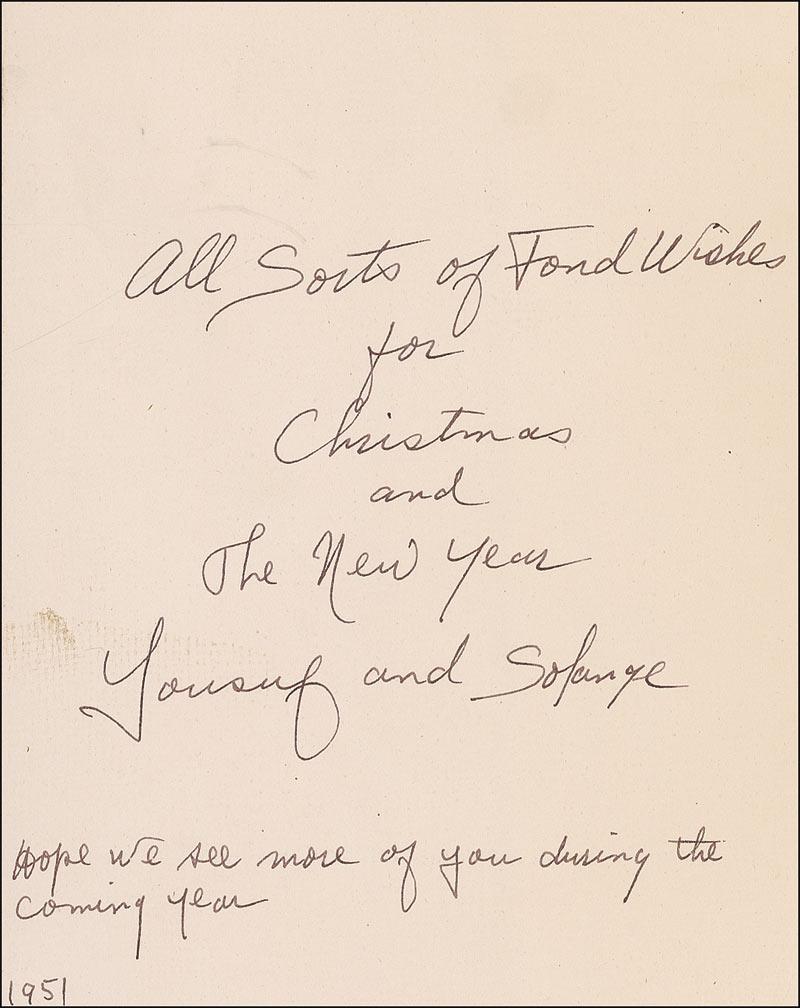 All Sorts of Fond Wishes
for
Christmas
and
The New Year
Yousuf and Solange
Hope we see more of you during the
coming year
1951